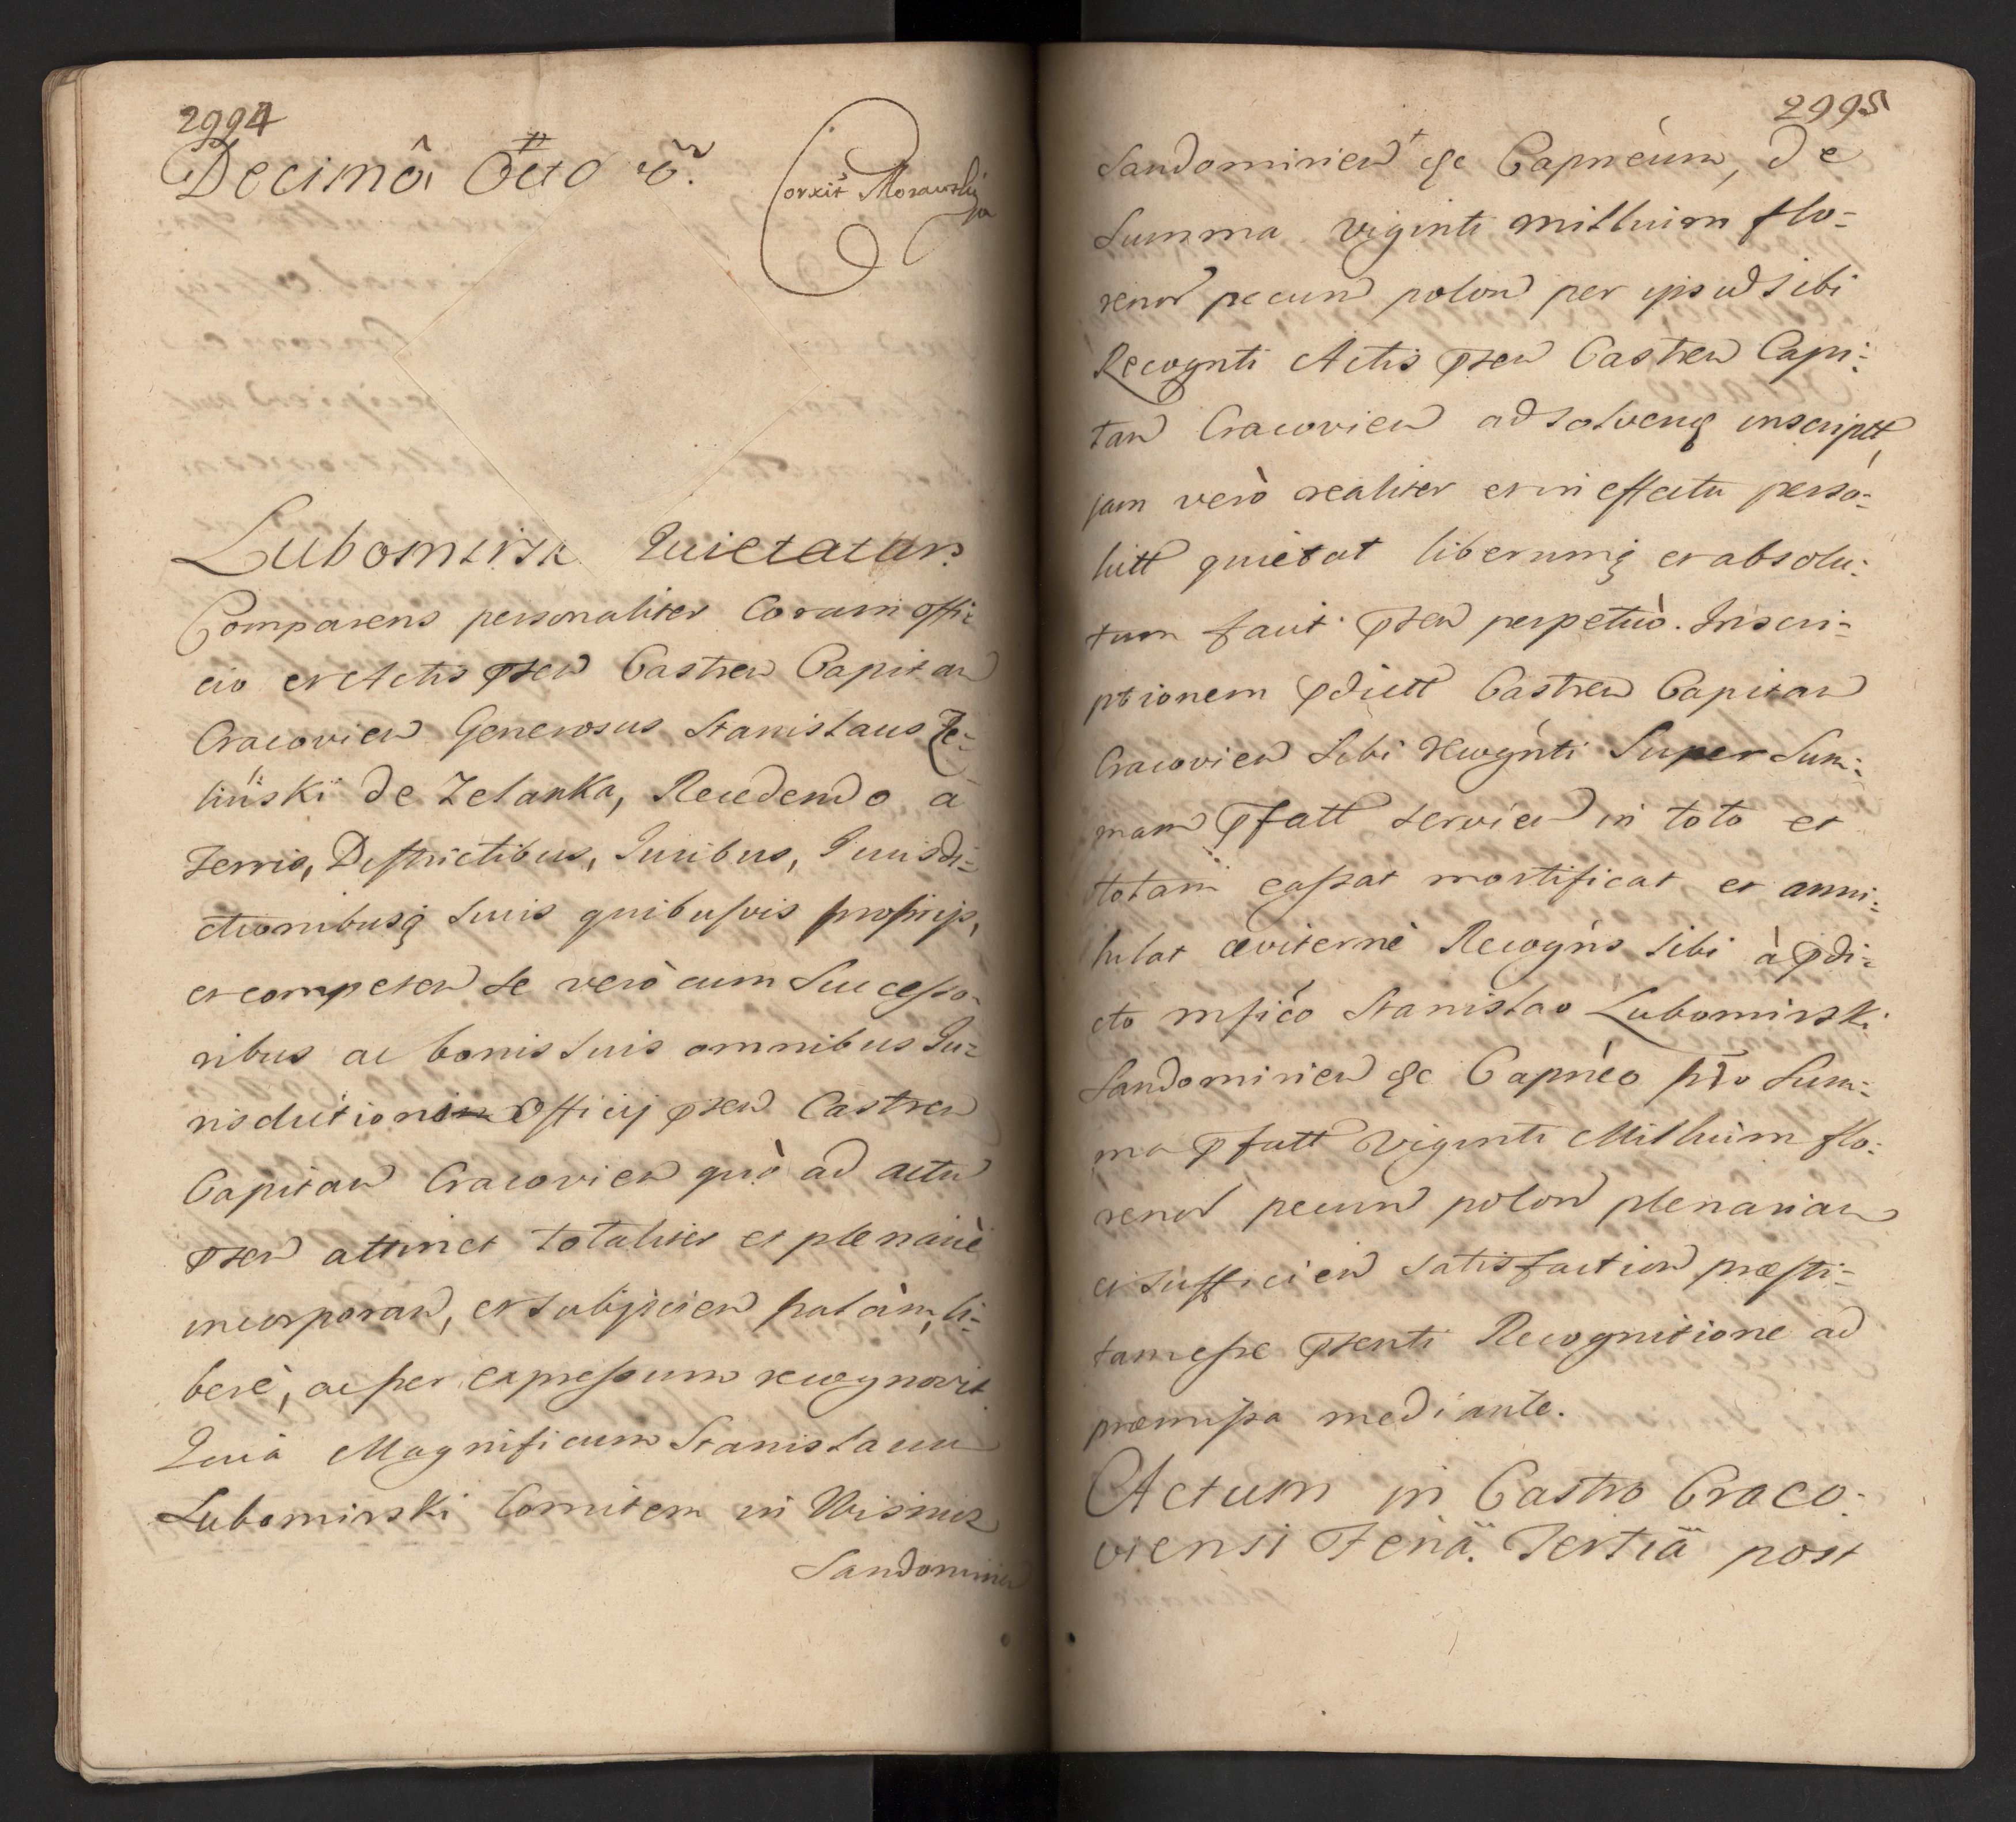 2994
Decimâ Octo
Corxit Morawskij
Lubomirski Quietatur.
Comparens personaliter Coram offi-
cio et Actis pñsen Castren Capitan
Cracovien Generosus Stanislaus Ze-
liński de Zelanka, Recedendo a
Terris, Destrictibus, Iuribus, Iurisdi-
ctionibusq suis quibusvis proprijs,
et competen se verò cum Successo-
ribus ac bonis suis omnibus Iu-
risdictioni Officij pñsen Castren
Capitan Cracovien quò ad actu
pñsen attinet totaliter et plenariè
incorporan, et subijcien palàm, li-
berè, ac per expressum recognovit
Quià Magnificum Stanislaum
Lubomirski Comitem in Wisnicz
Sandomirien
2995
Sandomirien &c Capnéum, de
Summa viginti millium flo-
renor pecun polon per ipsud sibi
Recognti Actis pñsen Castren Capi-
tan Cracovien ad solvenq inscriptt,
jam verò realiter et in effectu perso-
lutt quietat liberumq et absolu-
tum facit pñsen perpetuò. Inscri-
ptionem pdictt Castren Capitan
Cracovien Sibi Recognti Super Sum-
mam pfatt servien in toto et
totam cassat mortificat et anni-
hilat æviternè Recogns sibi à pdi-
cto mfico Stanislao Lubomirski
Sandomirien &c Capnéo pro Sum-
ma pfatt Viginti Millium flo-
renor pecun polon plenariam
et sufficien satisfaction præsti-
tam esse pñsenti Recognitione ad
præmissa mediante.
Actum in Castro Craco-
viensi Feriâ Tertiâ post